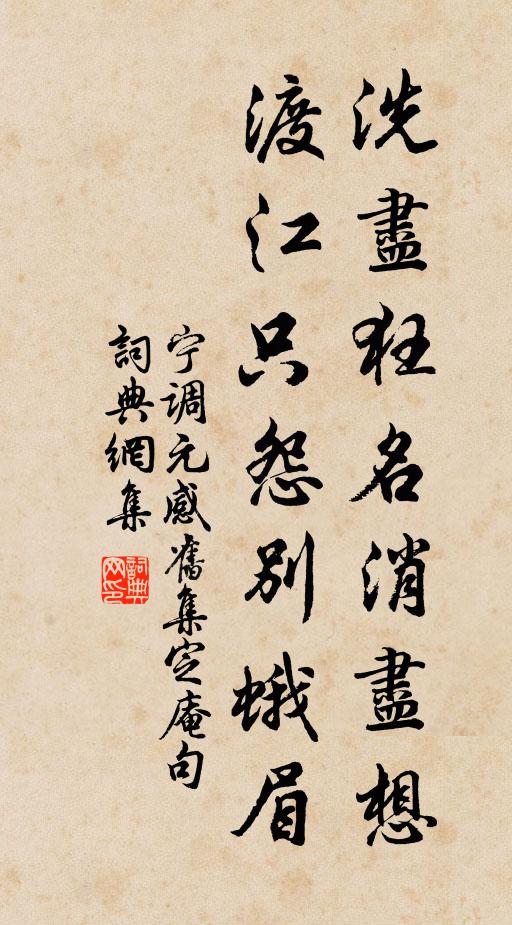 洗盡狂名消盡想
渡江只怨別蛾眉
宁調元感舊集定庵句
詞典網集
詞典网印